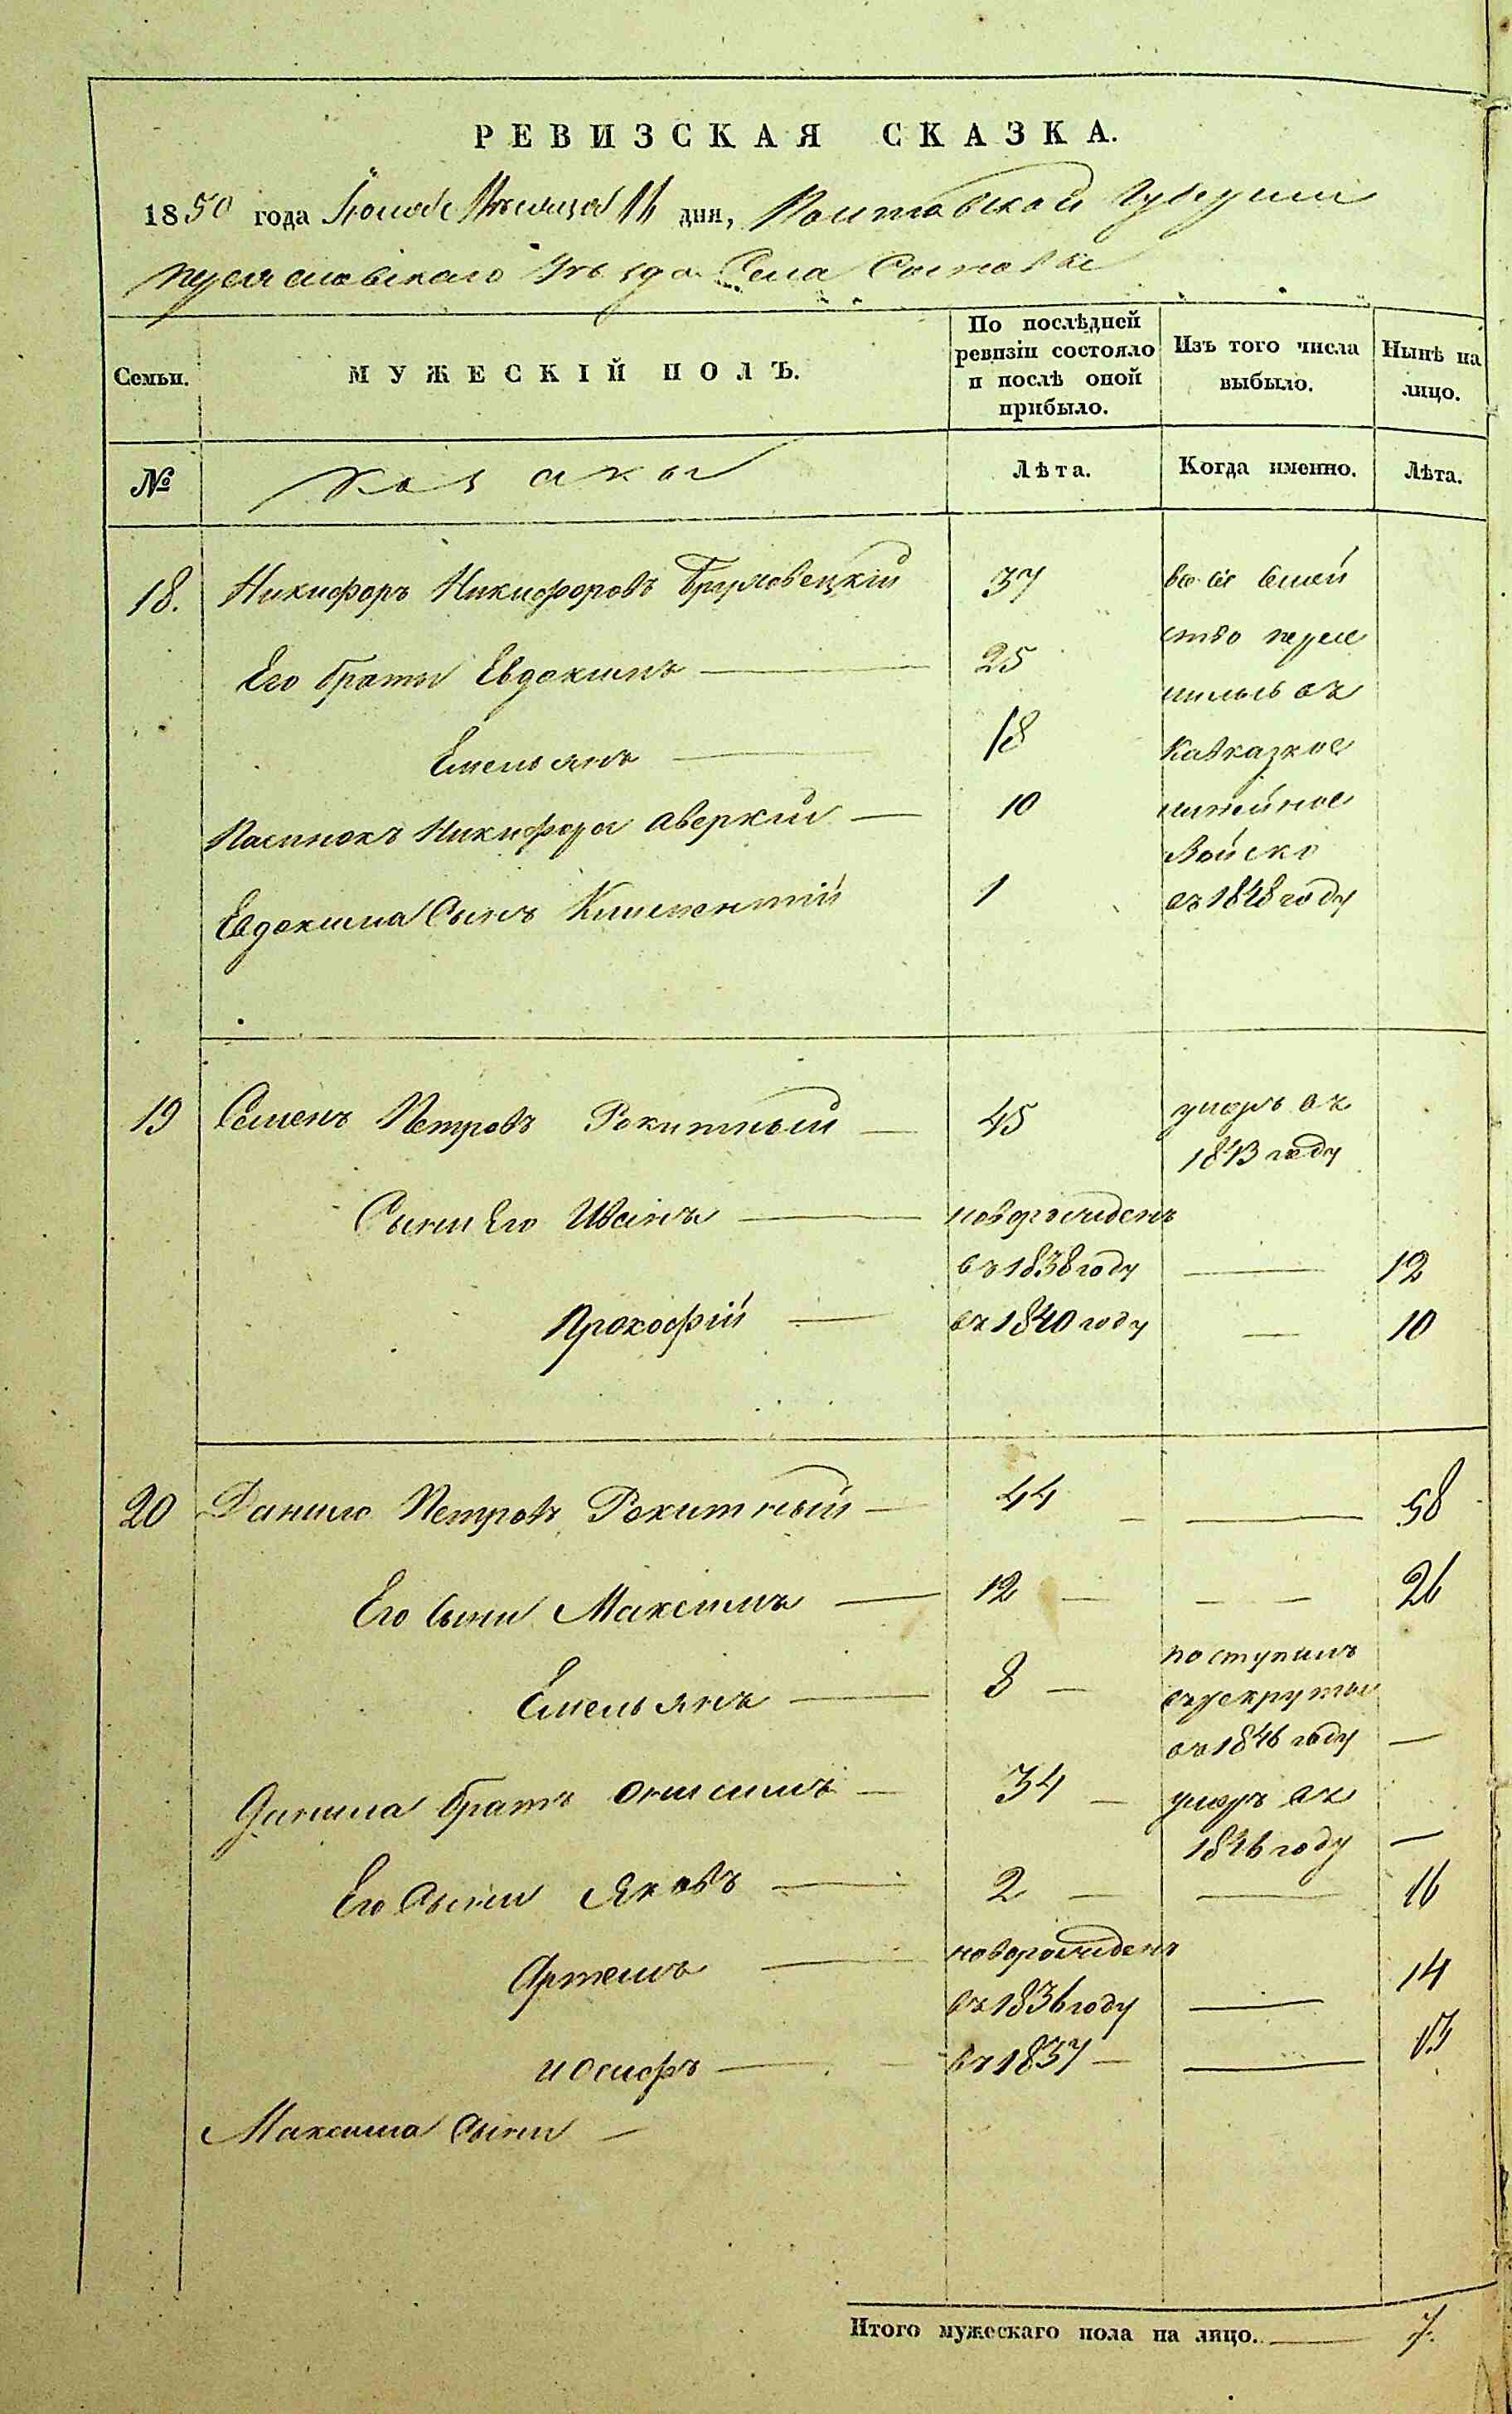 РЕВИЗСКАЯ СКАЗКА.
1850 года Іюня Мѣсяца 16 дня, Полтавской Губерніи
Переяславскаго Уѣзда Села Сосновки
Семьи.
МУЖЕСКІЙ ПОЛЪ.
По послѣдней ревизіи состояло и послѣ оной прибыло.
Изъ того числа выбыло.
Нынѣ на лицо.
№
Козаки
Лѣта.
Когда именно.
Лѣта.
18. Никифоръ Никифоровъ Бруховецкій 37 все сіе Семей
ство пересе
Его браты Евдокимъ 25
лилось въ
Емельянъ 18
Кавказкое
Пасинокъ Никифора Аверкій 10
линейное
Войско
Евдокима Сынъ Климентій 1
въ 1848 году
19 Семенъ Петровъ Рокитный 45 умеръ въ
1843 году
Сыни Его Иванъ новорожденъ
въ 1838 году 12
Прокофій въ 1840 году 10
20 Данило Петровъ Рокитный 44 58
Его Сыни Максимъ 12 26
Емельянъ 8 поступилъ
въ рекруты
въ 1846 году
Данила братъ Онисимъ 34 умеръ въ
1846 году
Его Сыни Яковъ 2 16
Артемъ новорожденъ
въ 1836 году 14
Иосифъ въ 1837 13
Максима Сыни
Итого мужескаго пола на лицо. 7.